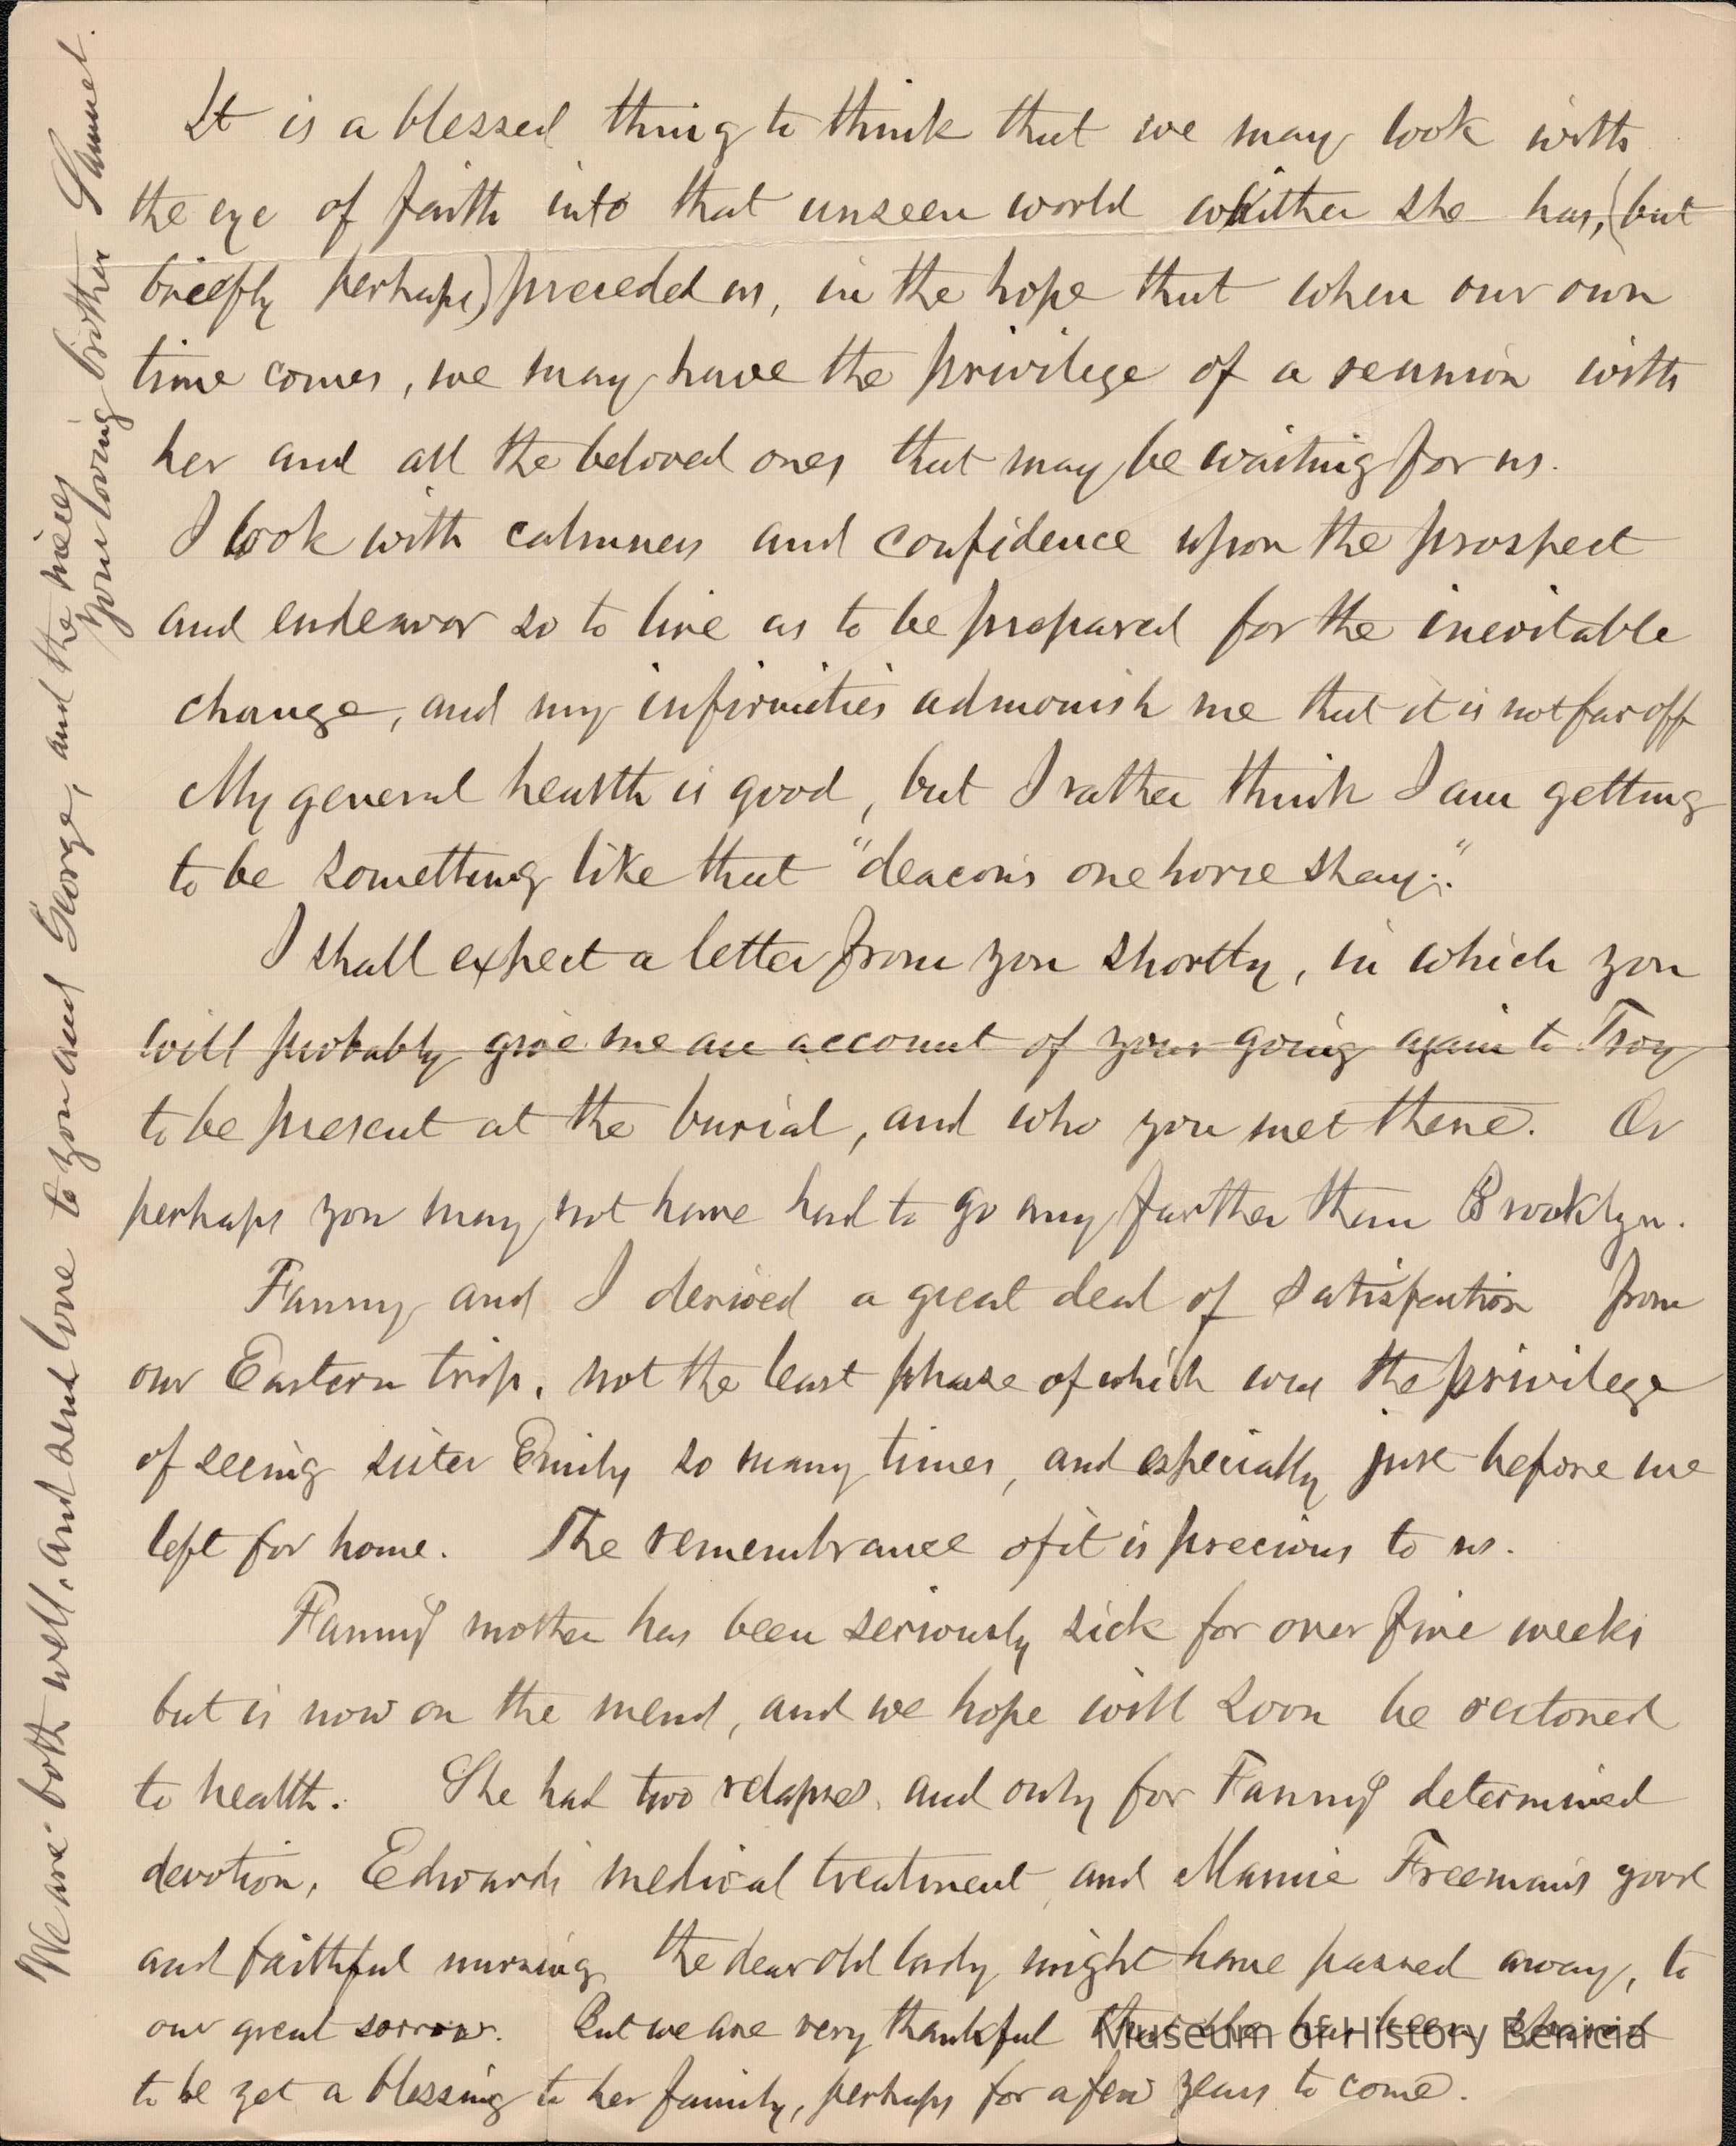 It is a blessed thing to think that we may look with
the eye of faith into that unseen world whither she has, (but
briefly perhaps) preceded us, in the hope that when our own
time comes, we may have the privilege of a reunion with
her and all the beloved ones that may be waiting for us.
I look with calmness and confidence upon the prospect
and endeavor so to live as to be prepared for the inevitable
change, and my infirmities admonish me that it is not far off
My general health is good, but I rather think I am getting
to be something like that "deacon's one horse shay."
I shall expect a letter from you shortly, in which you
will probably give me an account of your going again to Troy
to be present at the burial, and who you met there. Or
perhaps you may not have had to go any further than Brooklyn.
Fanny and I derived a great deal of satisfaction from
our Eastern trip, not the least phase of which was the privilege
of seeing sister Emily so many times, and especially just before we
left for home. The remembrance of it is precious to us.
Fanny's mother has been seriously sick for over five weeks
but is now on the mend, and we hope will soon be restored
to health. She had two relapses, and only for Fanny's determined
devotion, Edwards medical treatment, and Mamie Freeman's good
and faithful nursing the dear old lady might have passed away, to
our great sorrow. But we are very thankful that she has been spared
to be yet a blessing to her family, perhaps for a few years to come.
We are both well, and send love to you and George, and the nieces
Your loving brother Samuel.
Museum of History Benicia